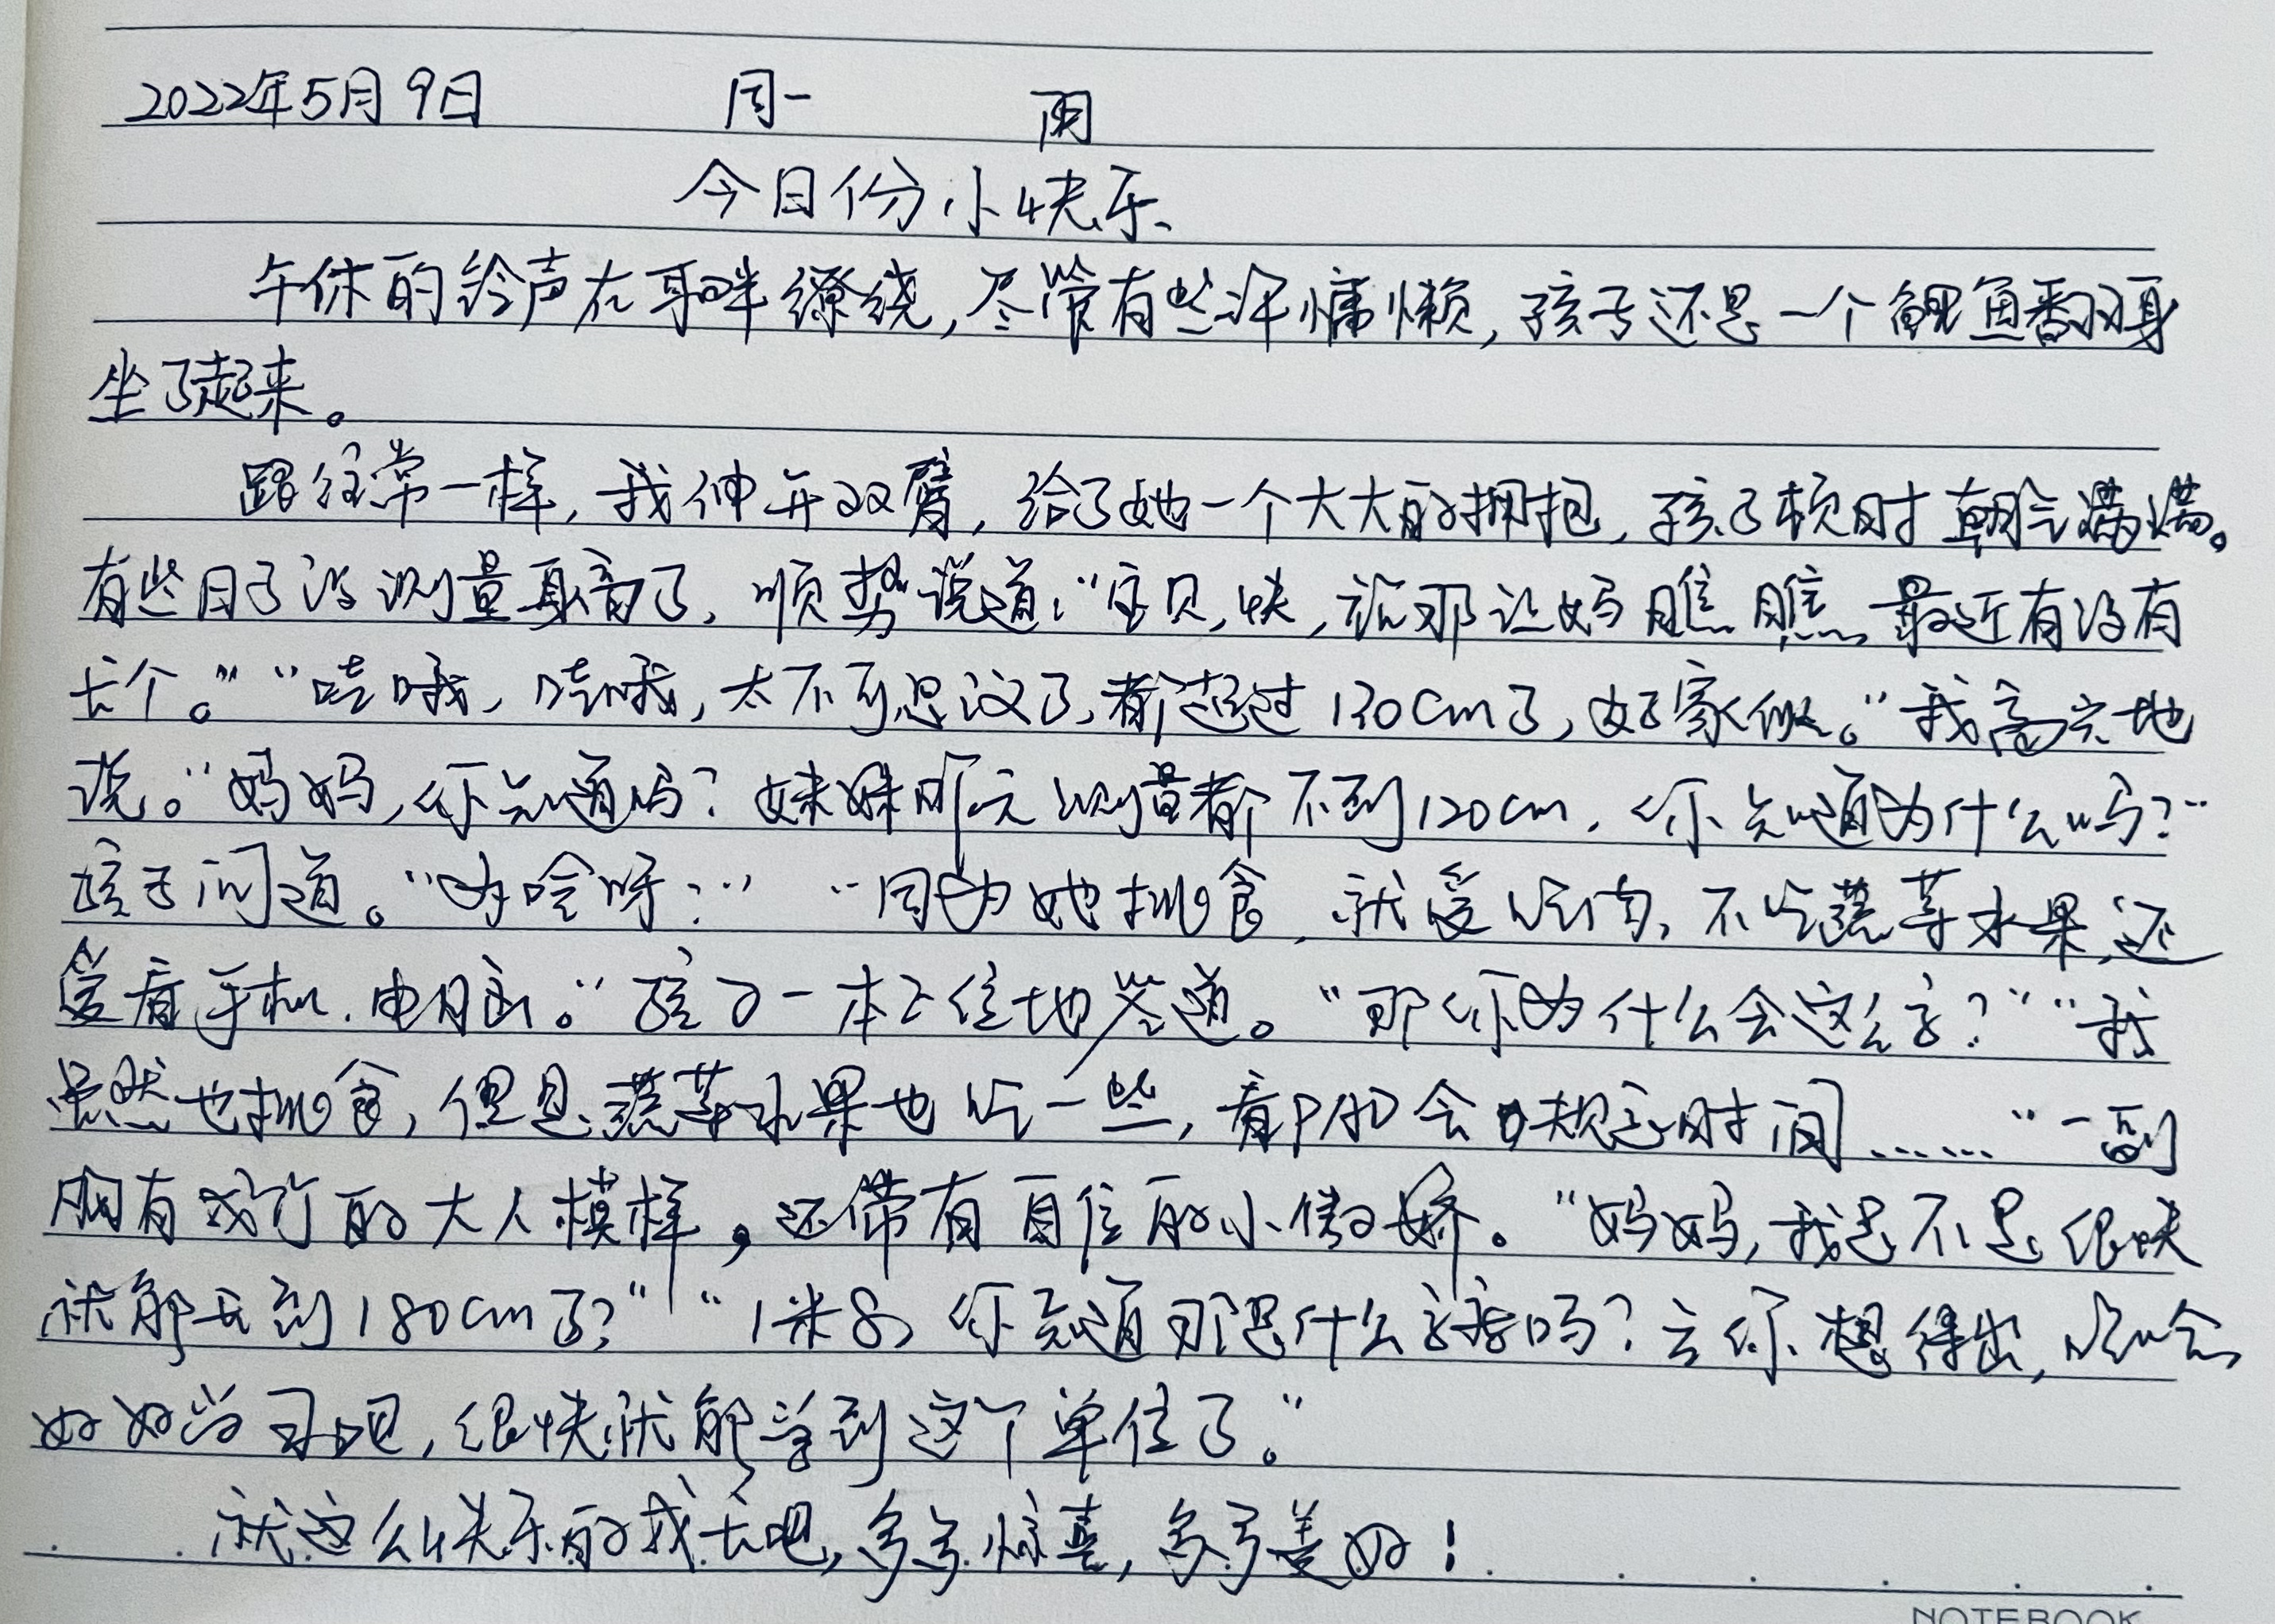 2022年5月9日 周一 雨
今日份小快乐
午休的铃声在耳畔缭绕,尽管有些许慵懒,孩子还是一个鲤鱼翻身
坐了起来。
跟往常一样,我伸开双臂,给了她一个大大的拥抱,孩子顿时朝气满满。
有些日子没测量身高了,顺势说道:“宝贝,快,站那让妈瞧瞧,最近有没有
长个。”“哇哦,哇哦,太不可思议了,都超过130cm了,好家伙。”我高兴地
说。“妈妈,你知道吗?妹妹昨天测量都不到120cm,你知道为什么吗?”
孩子问道。“为啥呀?”“因为她挑食,就爱吃肉,不吃蔬菜水果,还
爱看手机、电脑。”孩子一本正经地答道。“那你为什么会这么高?”“我
虽然也挑食,但是蔬菜水果也吃一些,看PAD会规定时间……”一副
胸有成竹的大人模样,还带有自信的小傲娇。“妈妈,我是不是很快
就能长到180cm了?”“1米8,你知道那是什么高度吗?亏你想得出,
好好学习吧,很快就能学到这个单位了。”
就这么快乐的成长吧,多多惊喜,多多美好!
NOTEBOOK